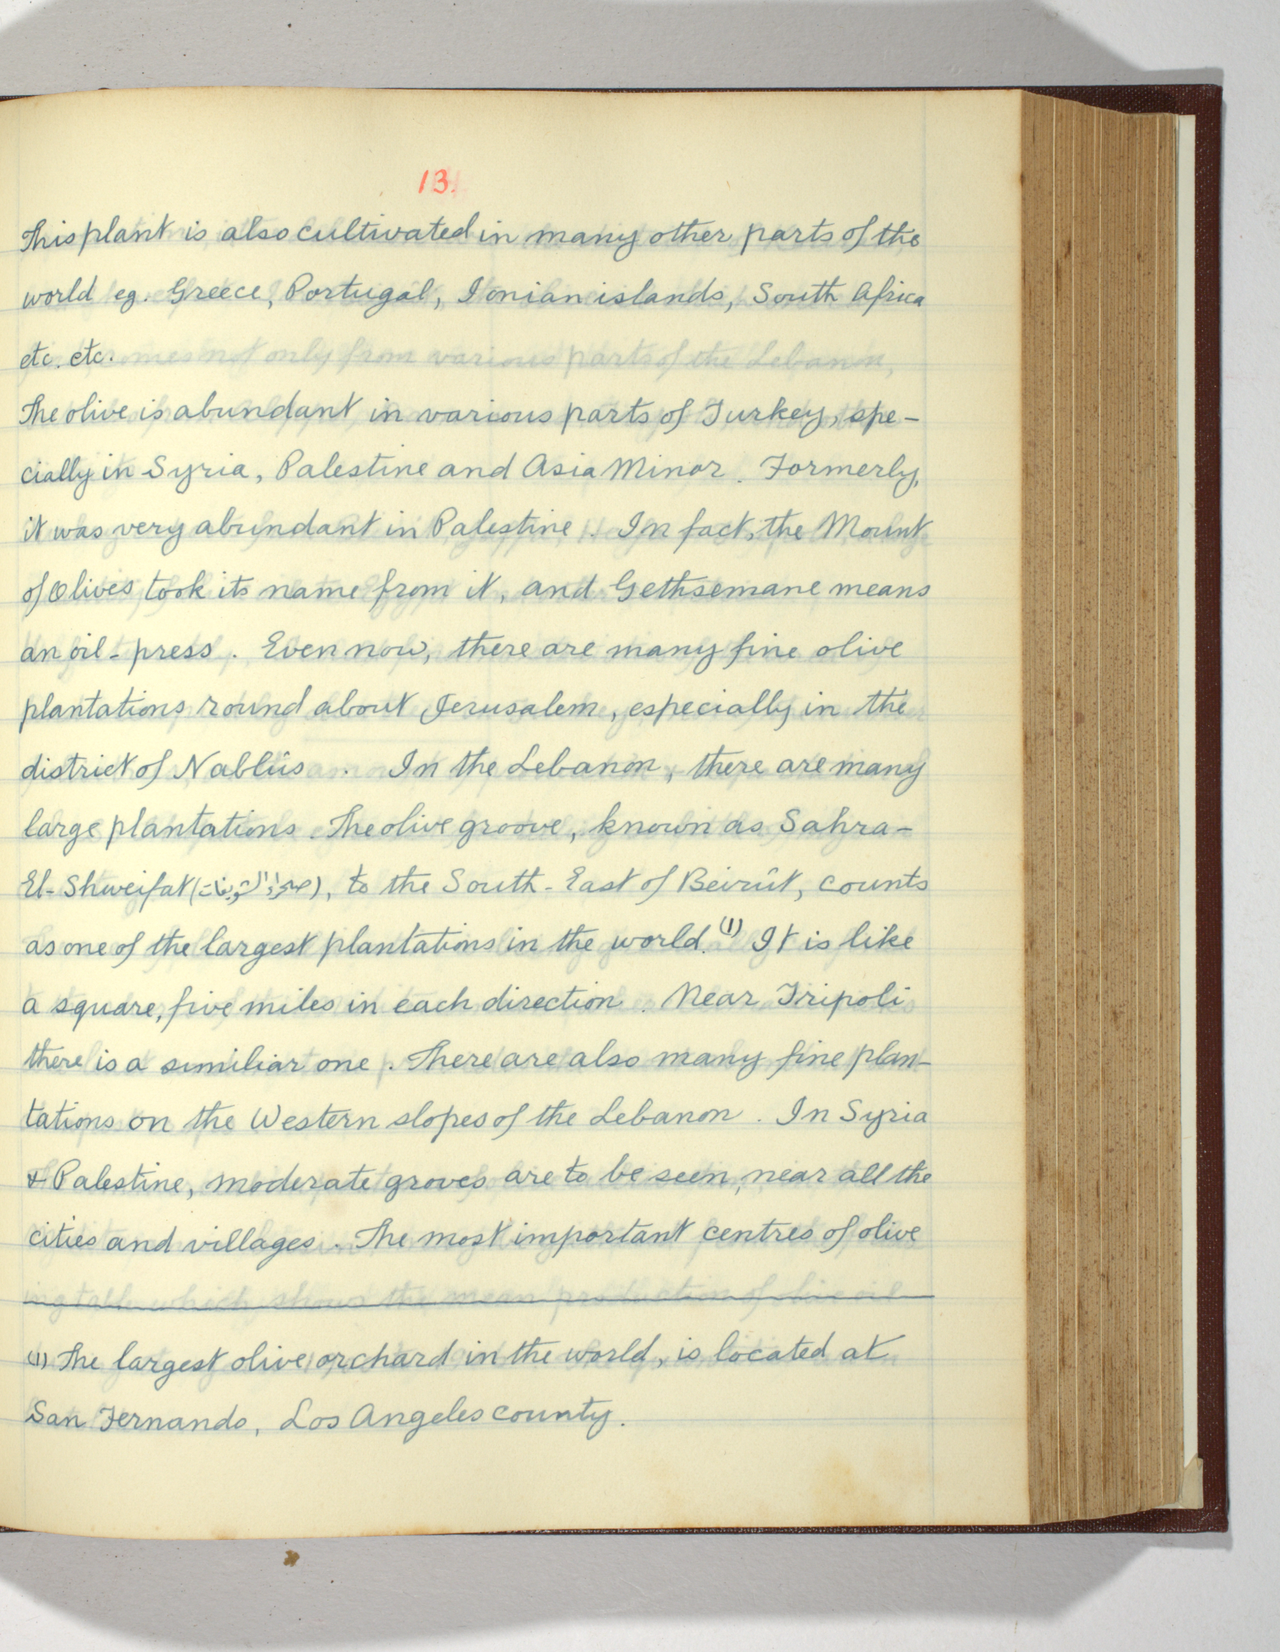 13.
This plant is also cultivated in many other parts of the
world eg. Greece, Portugal, Ionian islands, South Africa
etc. etc.
The olive is abundant in various parts of Turkey, spe-
cially in Syria, Palestine and Asia Minor. Formerly,
it was very abundant in Palestine. In fact, the Mount
of Olives took its name from it, and Gethsemane means
an oil-press. Even now, there are many fine olive
plantations round about Jerusalem, especially in the
district of Nablûs. In the Lebanon, there are many
large plantations. The olive groove, known as Sahra-
El-Shweifat (صحراء الشويفات), to the South-East of Beirût, counts
as one of the largest plantations in the world.(1) It is like
a square, five miles in each direction. Near Tripoli
there is a similiar one. There are also many fine plan-
tations on the Western slopes of the Lebanon. In Syria
& Palestine, moderate groves are to be seen, near all the
cities and villages. The most important centres of olive
(1) The largest olive orchard in the world, is located at
San Fernando, Los Angeles county.